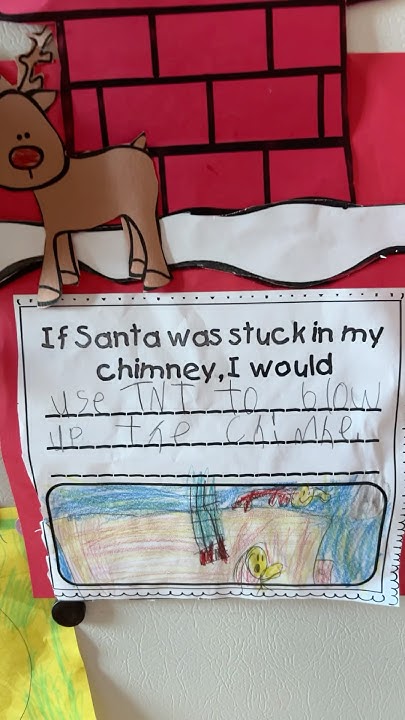 If Santa was stuck in my
chimney, I would
use TNT to blow
up the chimne.